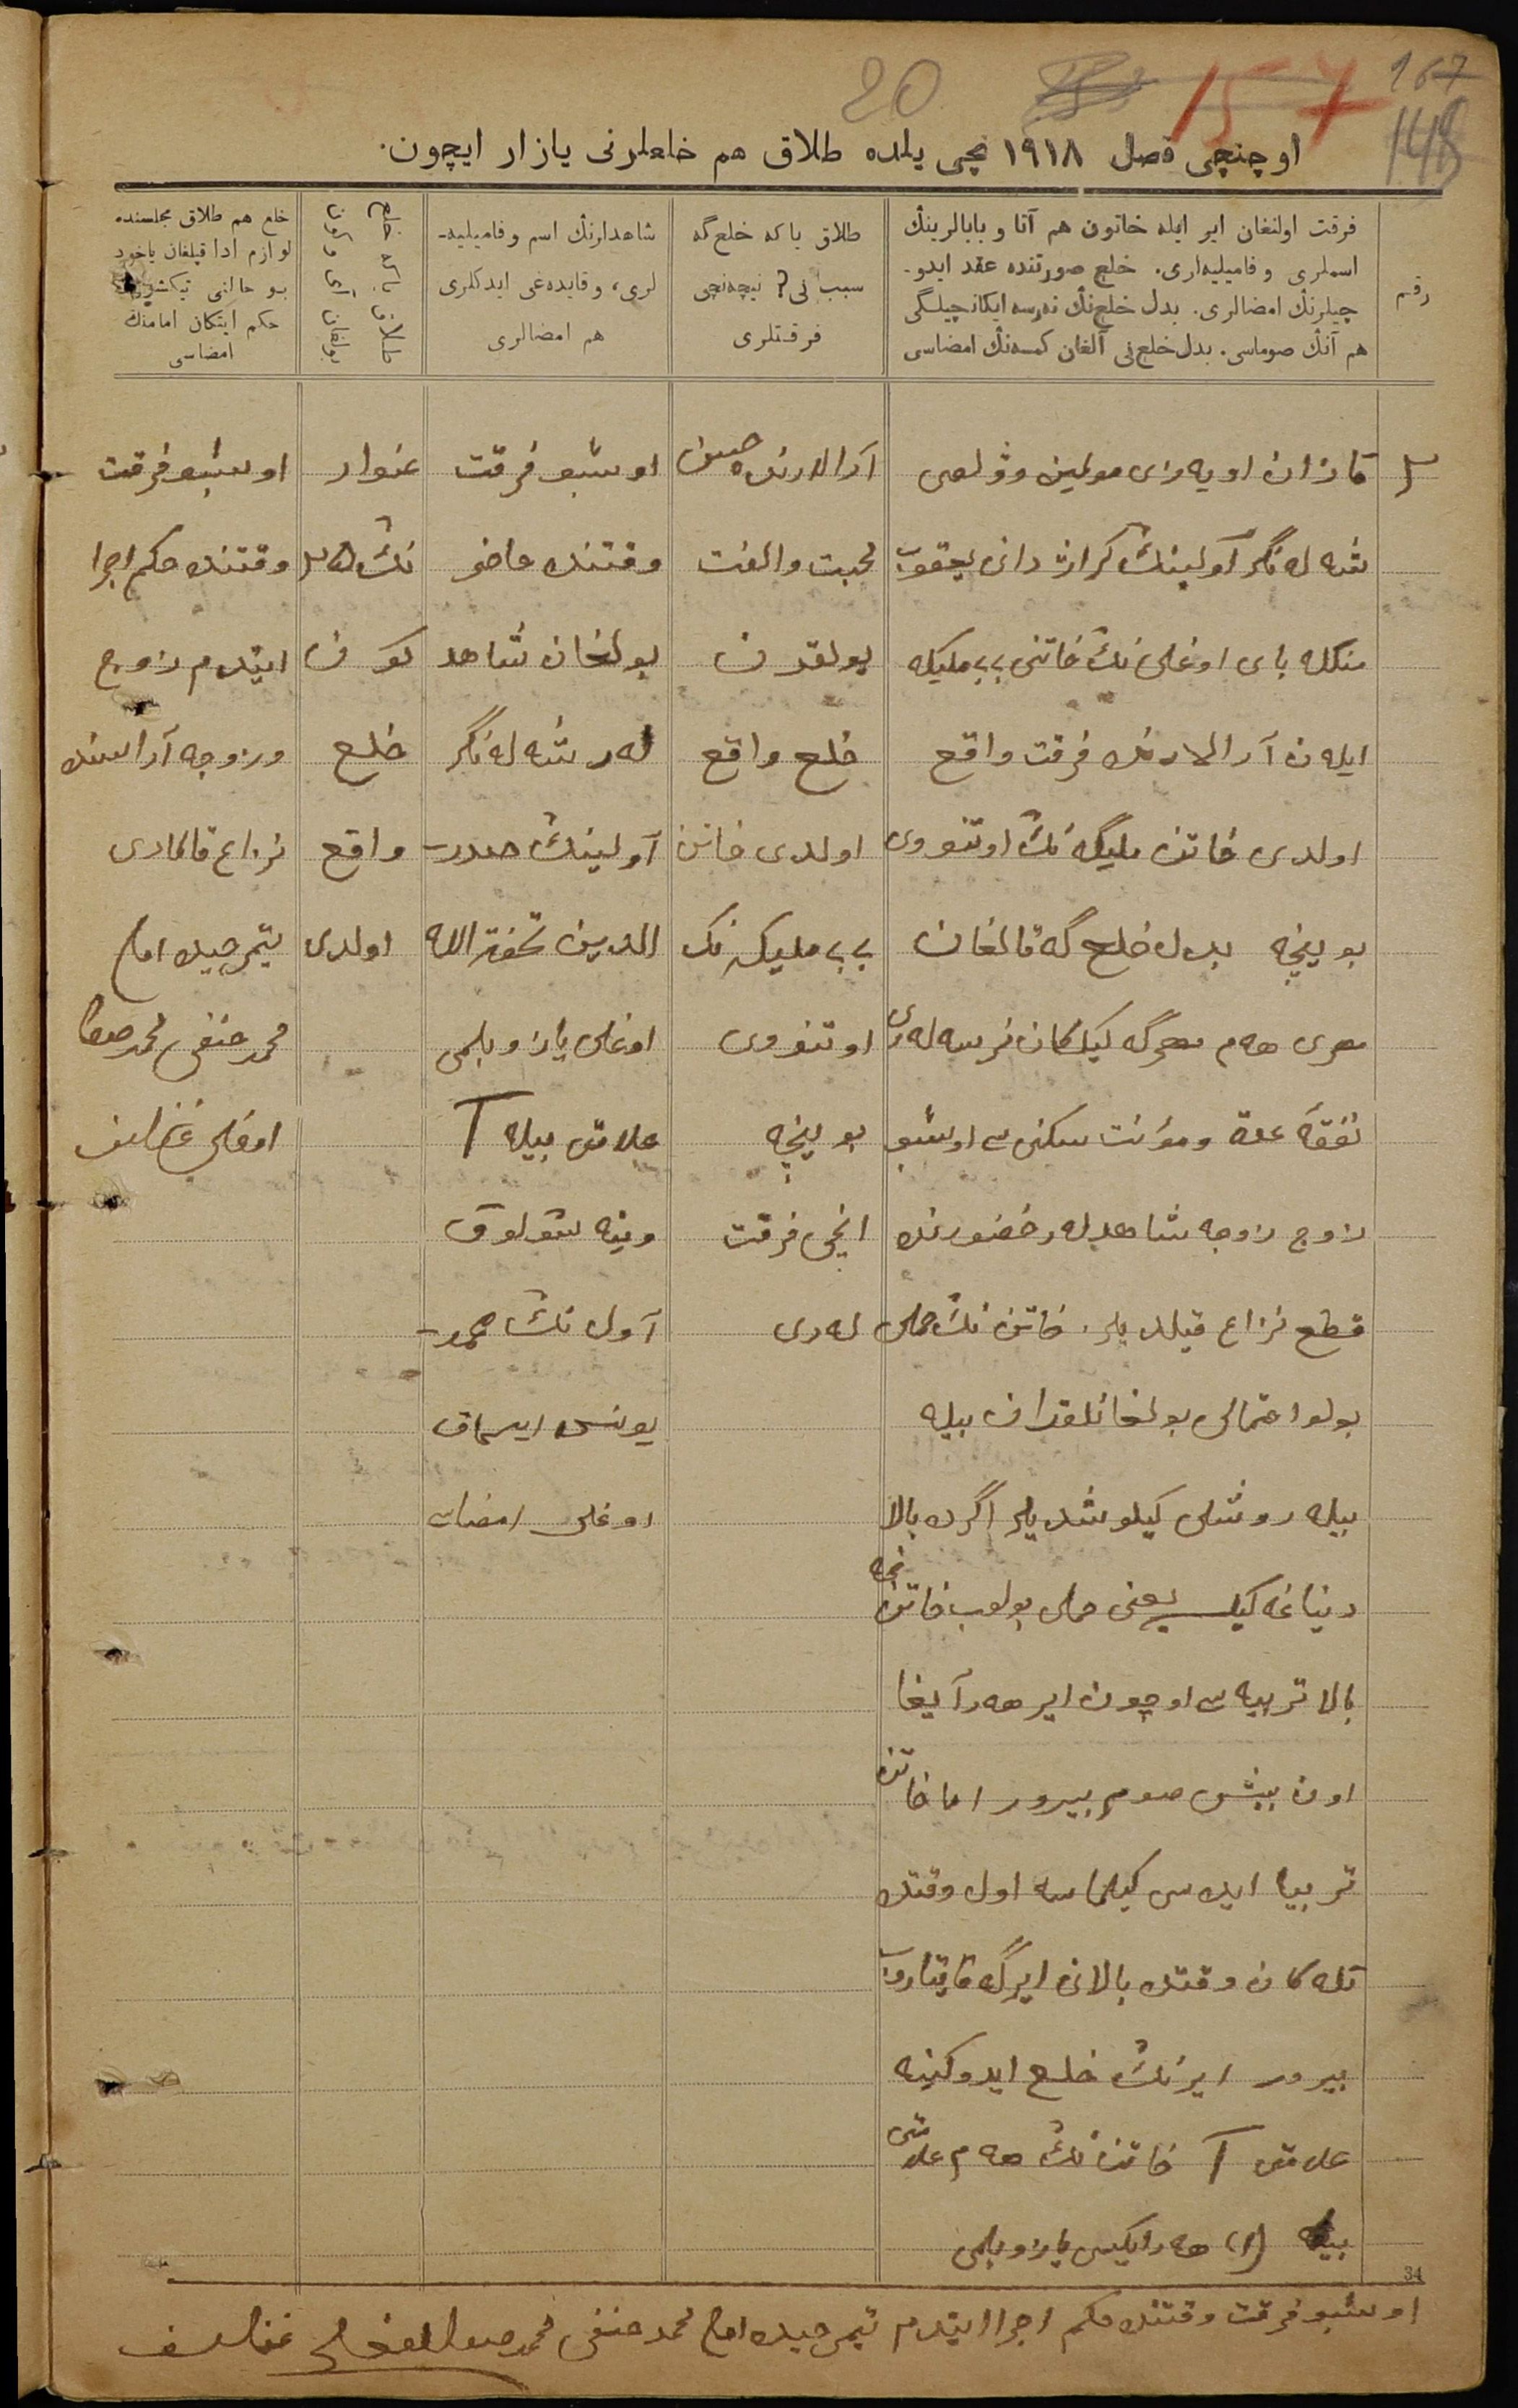 167
148
157
20
اوچنچی فصل ١٩١٨ نچی یلده طلاق هم خلعلرنی یازار ایچون.
رقم
فرقت اولنغان ایر ایله خاتون هم آتا و بابالرینڭ
اسملری و فامیلیه‌لری. خلع صورتنده عقد ایدو-
چیلرنڭ امضالری. بدل خلع‌نڭ نەرسه ایکانچیلگی
هم آنڭ صوماسی. بدل خلع‌نی آلغان کمسه‌نڭ امضاسی
طلاق یا که خلع گه
سبب نی؟ نیچه‌نچی
فرقتلری
شاهدلرنڭ اسم و فامیلیه-
لری، و قایده‌غی ایدکلری
هم امضالری
خلع یا که طلاق
خلع هم طلاق مجلسنده
لوازم ادا قیلغان یاخود
بو حالنی تیکشروب
حکم ایتکان امامنڭ
امضاسی
قازان اویه‌زی وولصی
آولینڭ
بای اوغلی نڭ خاتنی بی بی ملیکه
ایله‌ن آرالارنده فرقت واقع
اولدی خاتن ملیکه نڭ اوتنووی
بوینچه بدل خلع گه قالغان
مهری هه‌م مهرگه کیلکان نرسه له‌ری
نفقۀ عدة و مؤنت سکنی سی اوشبو
زوج زوجه شاهدلەر حضورنده
قطع نزاع قیلدیلر. خاتن نڭ حملی
بولو احتمالی بولغانلقدان بیله
بیله روشلی کیلوشدیلر اگرده بالا
دنیاغه کیلسه یعنی حملی بولوب خاتن
بالا تربیه سی اوچون ایر هه‌ر آیغا
اون بیش صوم بیرور اما خاتن
تربیا ایده‌سی کیلماسه اول وقتده
تله‌کان وقتده بالانی ایرگه قایتاروب
بیرور ایرنڭ خلع ایدوکینه
علامتی T خاتن نڭ هه‌م علامتی
بیله (١) هه‌ر ایکیسی یازو بلمی
آرالارنده حسن
محبت والفت
یولقدن
خلع واقع
اولدی خاتن
بی بی ملیکه نڭ
اوتنووی
بوینچه
انچی فرقت
له‌ری
اوشبو فرقت
وقتنده حاضر
بولغان شاهد
له‌ر
آولینڭ صدر-
الدین تحفة الله
اوغلی یازو بلمی
علامتی بیله T
آول نڭ محمد-
یونس
اوغلی امضاسی
غنوار
نڭ
کون
خلع
واقع
اولدی
اوشبو فرقت
وقتنده حکم اجرا
ایتدم زوج
و زوجه آراسنده
نزاع قالمادی
امام
محمد حنفی محمد صفا
اوغلی
اوشبو فرقت وقتنده حکم اجرا ایتدم امام محمد حنفی محمد صفا اوغلی
34